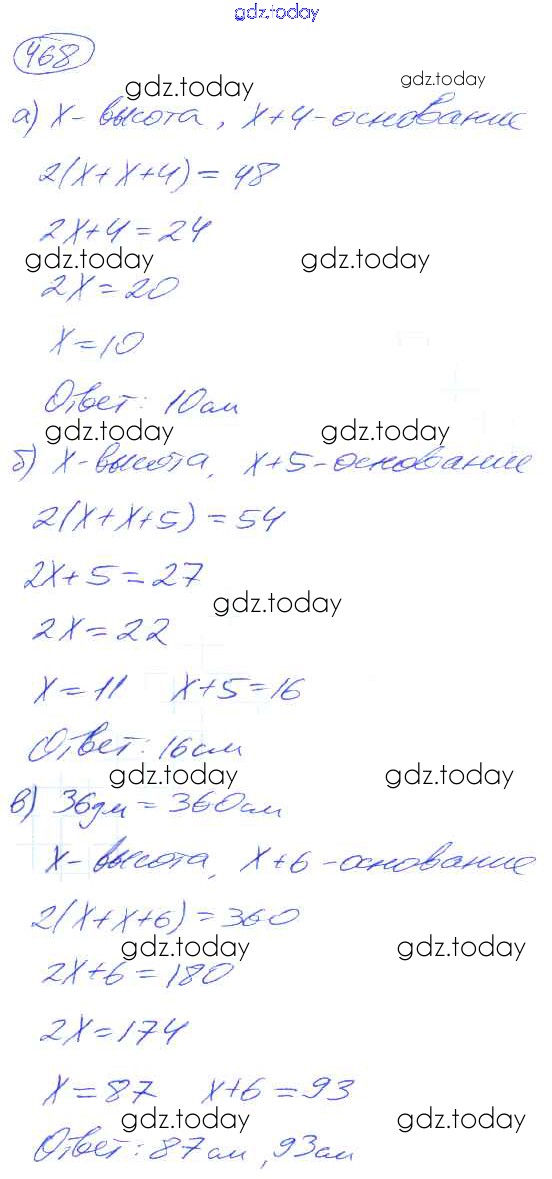 gdz.today
468
gdz.today gdz.today
а) x - высота, x+4 - основание
2(x+x+4) = 48
2x+4 = 24
gdz.today gdz.today
2x = 20
x = 10
Ответ: 10 см
gdz.today gdz.today
б) x - высота, x+5 - основание
2(x+x+5) = 54
2x+5 = 27
gdz.today
2x = 22
x = 11 x+5 = 16
Ответ: 16 см
gdz.today gdz.today
в) 36 дм = 360 см
x - высота, x+6 - основание
2(x+x+6) = 360
gdz.today gdz.today
2x+6 = 180
2x = 174
x = 87 x+6 = 93
gdz.today gdz.today
Ответ: 87 см, 93 см